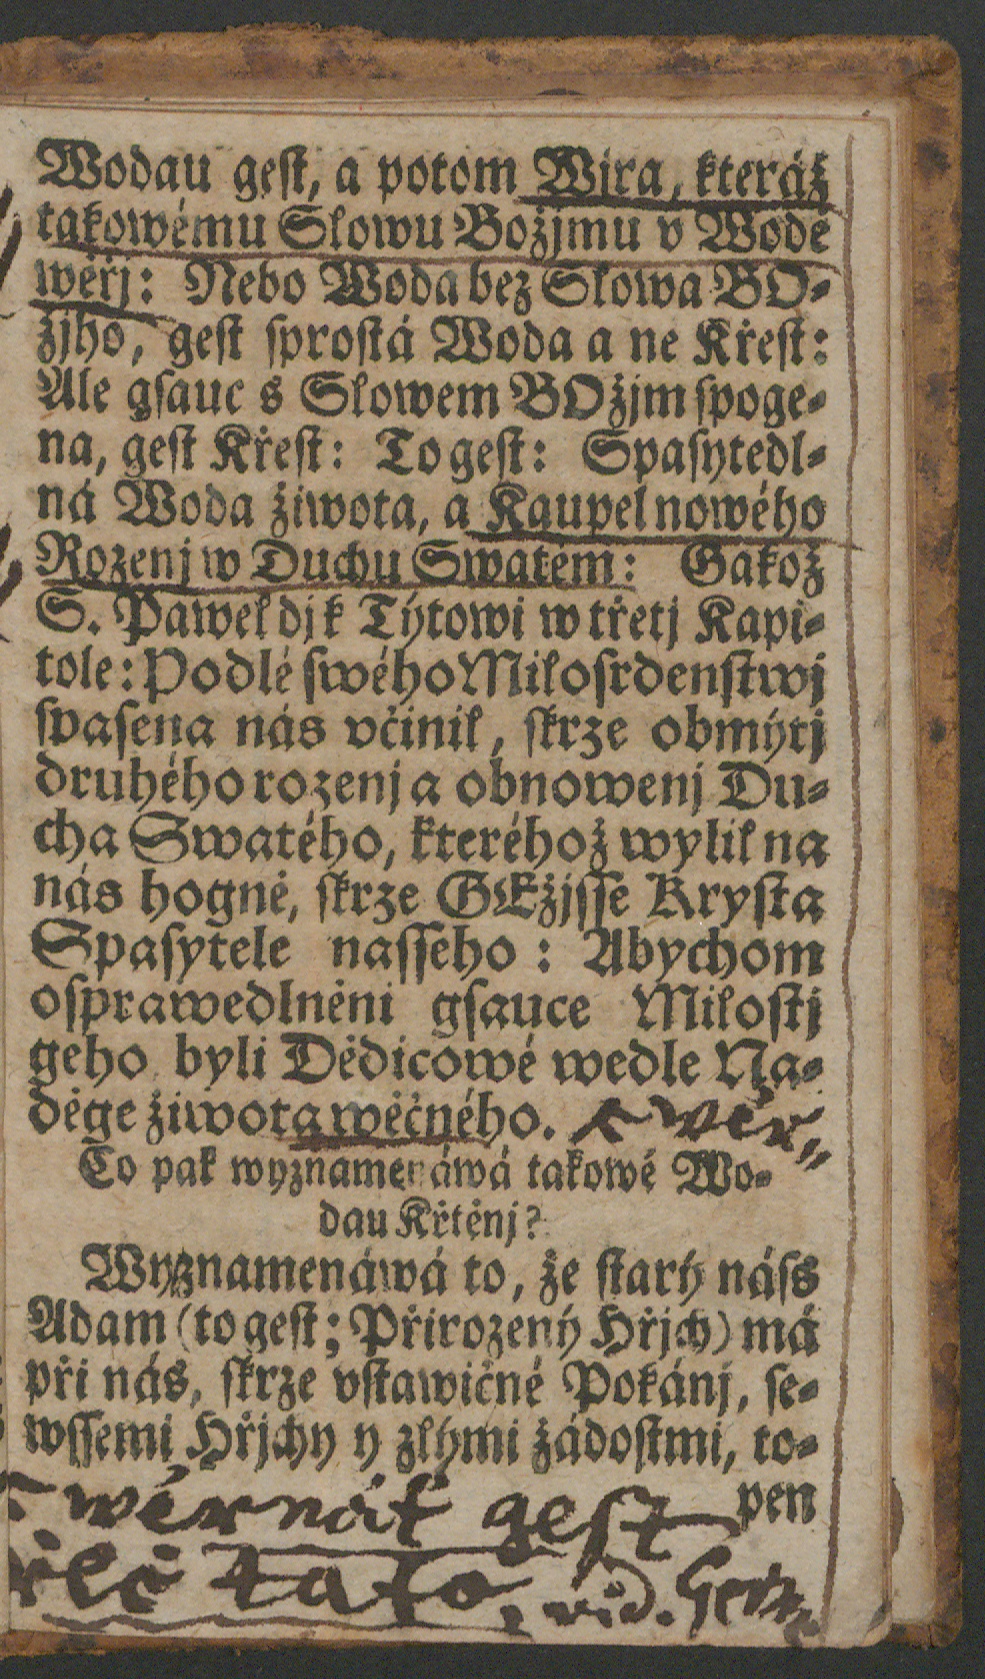 Wodau geſt, a potom Wjra, kteráž
takowému Slowu Božjmu v Wodě
wěřj: Nebo Woda bez Slowa BO-
žjho, geſt ſproſtá Woda a ne Křeſt:
Ale gſauc s Slowem BOžjm ſpoge-
na, geſt Křeſt: To geſt: Spaſytedl-
ná Woda žiwota, a Kaupel nowého
Rozenj w Duchu Swatém: Gakož
S. Pawel djk Tytowi w třetj Kapi-
tole: Podlé ſwého Miloſrdenſtwj
ſpaſena nás včinil, ſkrze obmýtj
druhého rozenj a obnowenj Du-
cha Swatého, kteréhož wylil na
nás hogně, ſkrze GEžjſſe Kryſta
Spaſytele naſſeho: Abychom
oſprawedlněni gſauce Miloſtj
geho byli Dědicowé wedle Na-
děge žiwota wěčného. wěr
Co pak wyznamenáwá takowé Wo-
dau Křtěnj?
Wyznamenáwá to, že ſtarý náſs
Adam (to geſt; Přirozený Hřjch) má
při nás, ſkrze vſtawičné Pokánj, ſe-
wſſemi Hřjchy y zlými žádoſtmi, to-
pen
wěrnát geſt
řeč tato, vid.